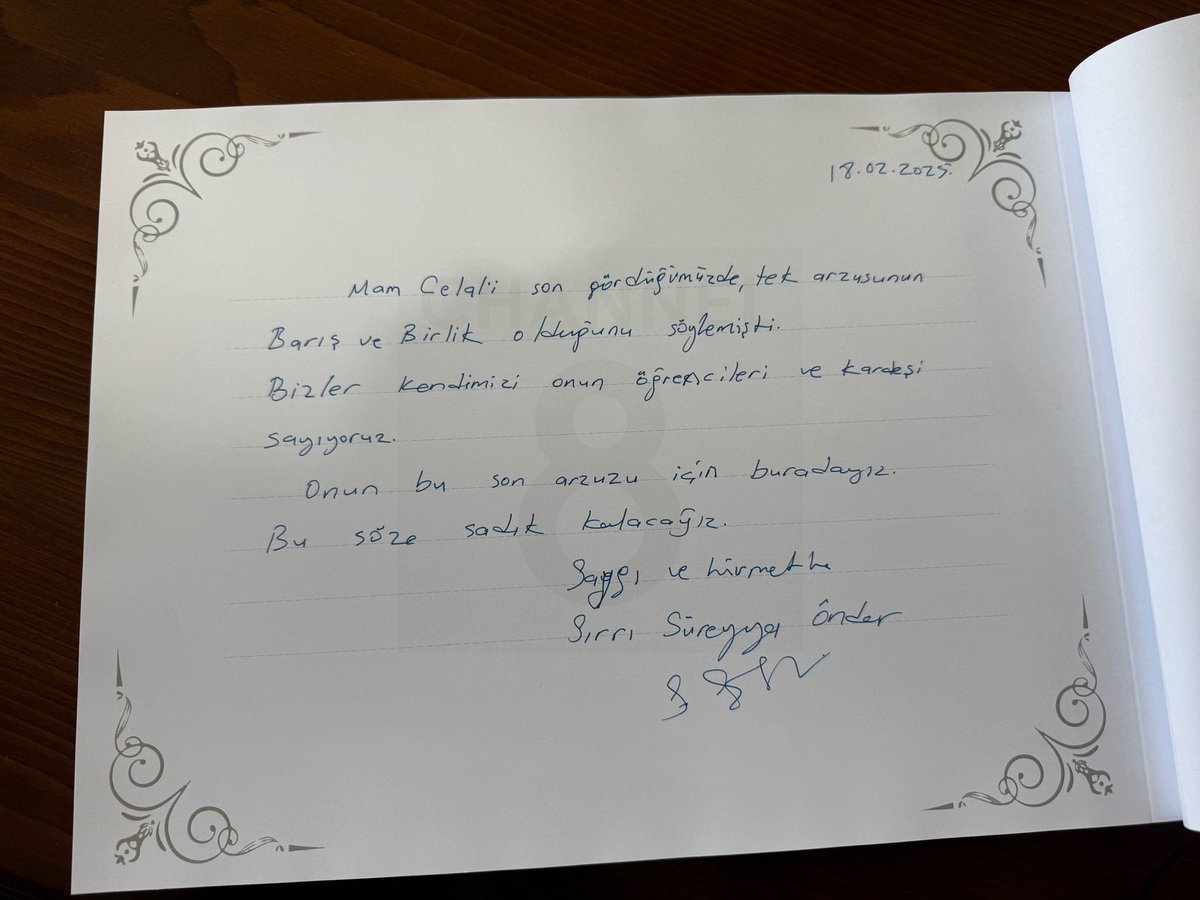 18.02.2025.
Mam Celal'i son gördüğümüzde, tek arzusunun
Barış ve Birlik olduğunu söylemişti.
Bizler kendimizi onun öğrencileri ve kardeşi
sayıyoruz.
Onun bu son arzuzu için buradayız.
Bu söze sadık kalacağız.
Saygı ve hürmetle
Sırrı Süreyya Önder
CHANNEL
8